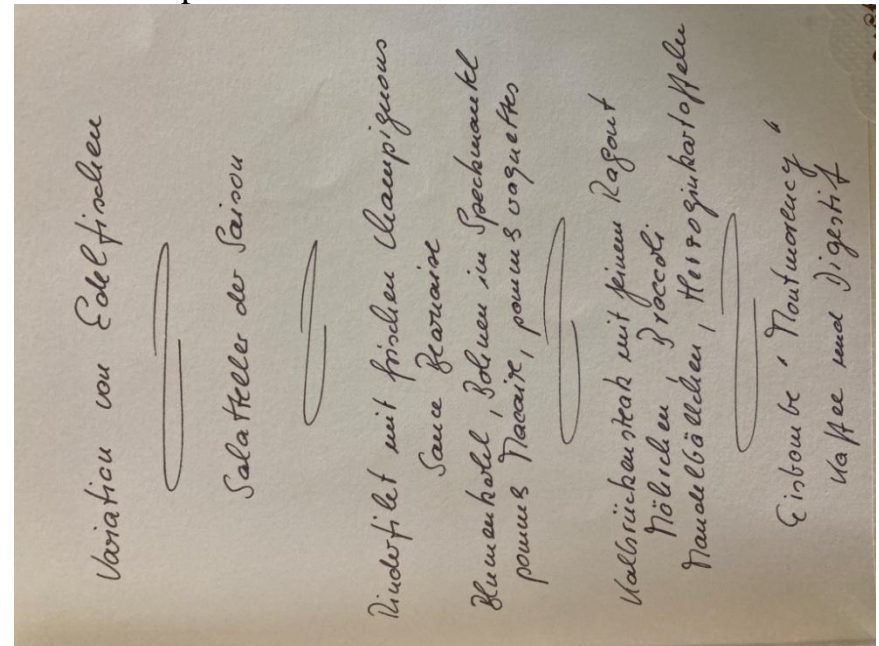 Variation von Edelfischen
Salatteller der Saison
Rinderfilet mit frischen Champignons
Sauce Bearnaise
Blumenkohl, Bohnen im Speckmantel
pommes Macaire, pommes voguettes
Kalbsrückensteak mit feinem Ragout
Möhrchen, Broccoli
Mandelbällchen, Herzoginkartoffeln
Eisbombe "Montmorency"
Kaffee und Digestif